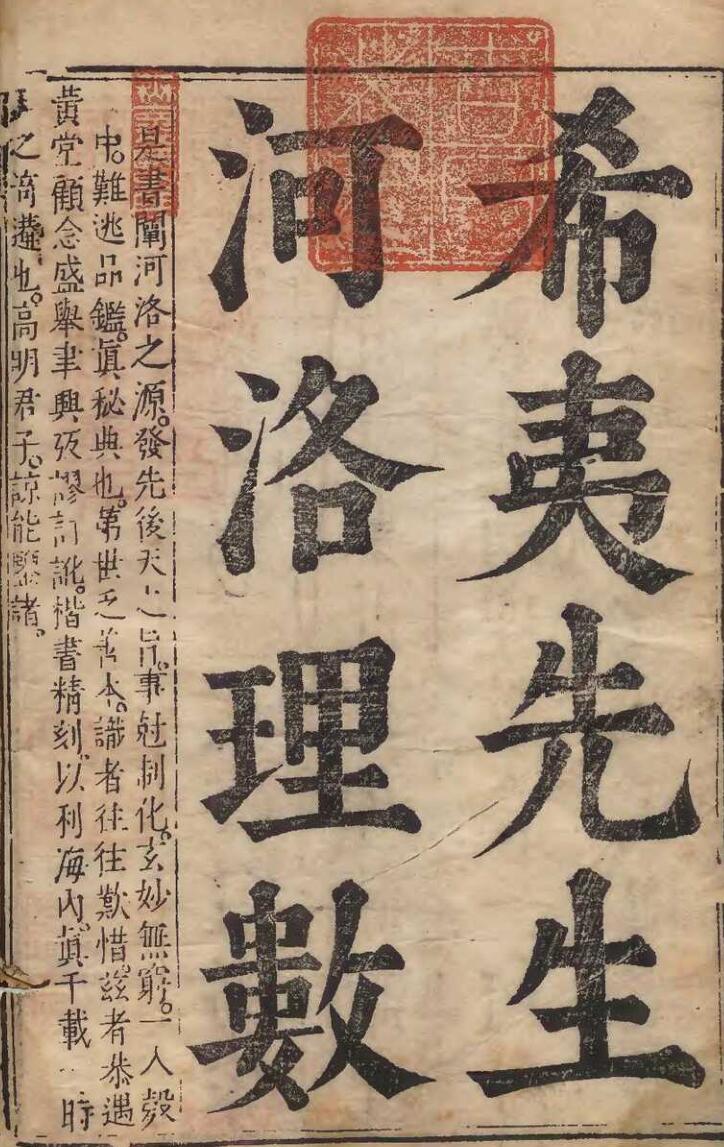 希夷先生
河洛理數
是書闡河洛之源。發先後天之旨。事尅制化。玄妙無窮。一入彀
中。難逃品鑑。眞秘典也。第世乏善本。識者往往歎惜。茲者恭遇
黃堂顧念盛舉聿興攷謬訂訛。楷書精刻。以利海內。眞千載一時
之也。高明君子。諒能鑒諸。